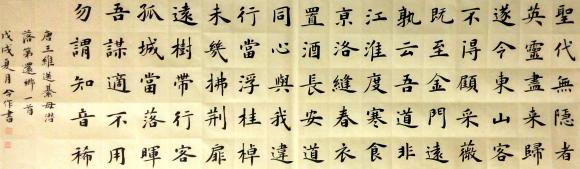 聖代無隱者
英靈盡来歸
遂令東山客
不得顧采薇
既至金門遠
孰云吾道非
江淮度寒食
亰洛縫春衣
置酒長安道
同心與我違
行當浮桂棹
未幾拂荆扉
遠樹帶行客
孤城當落暉
吾謀適不用
勿謂知音稀
唐王維送綦毋潛
落第還鄉一首
戊戌夏月